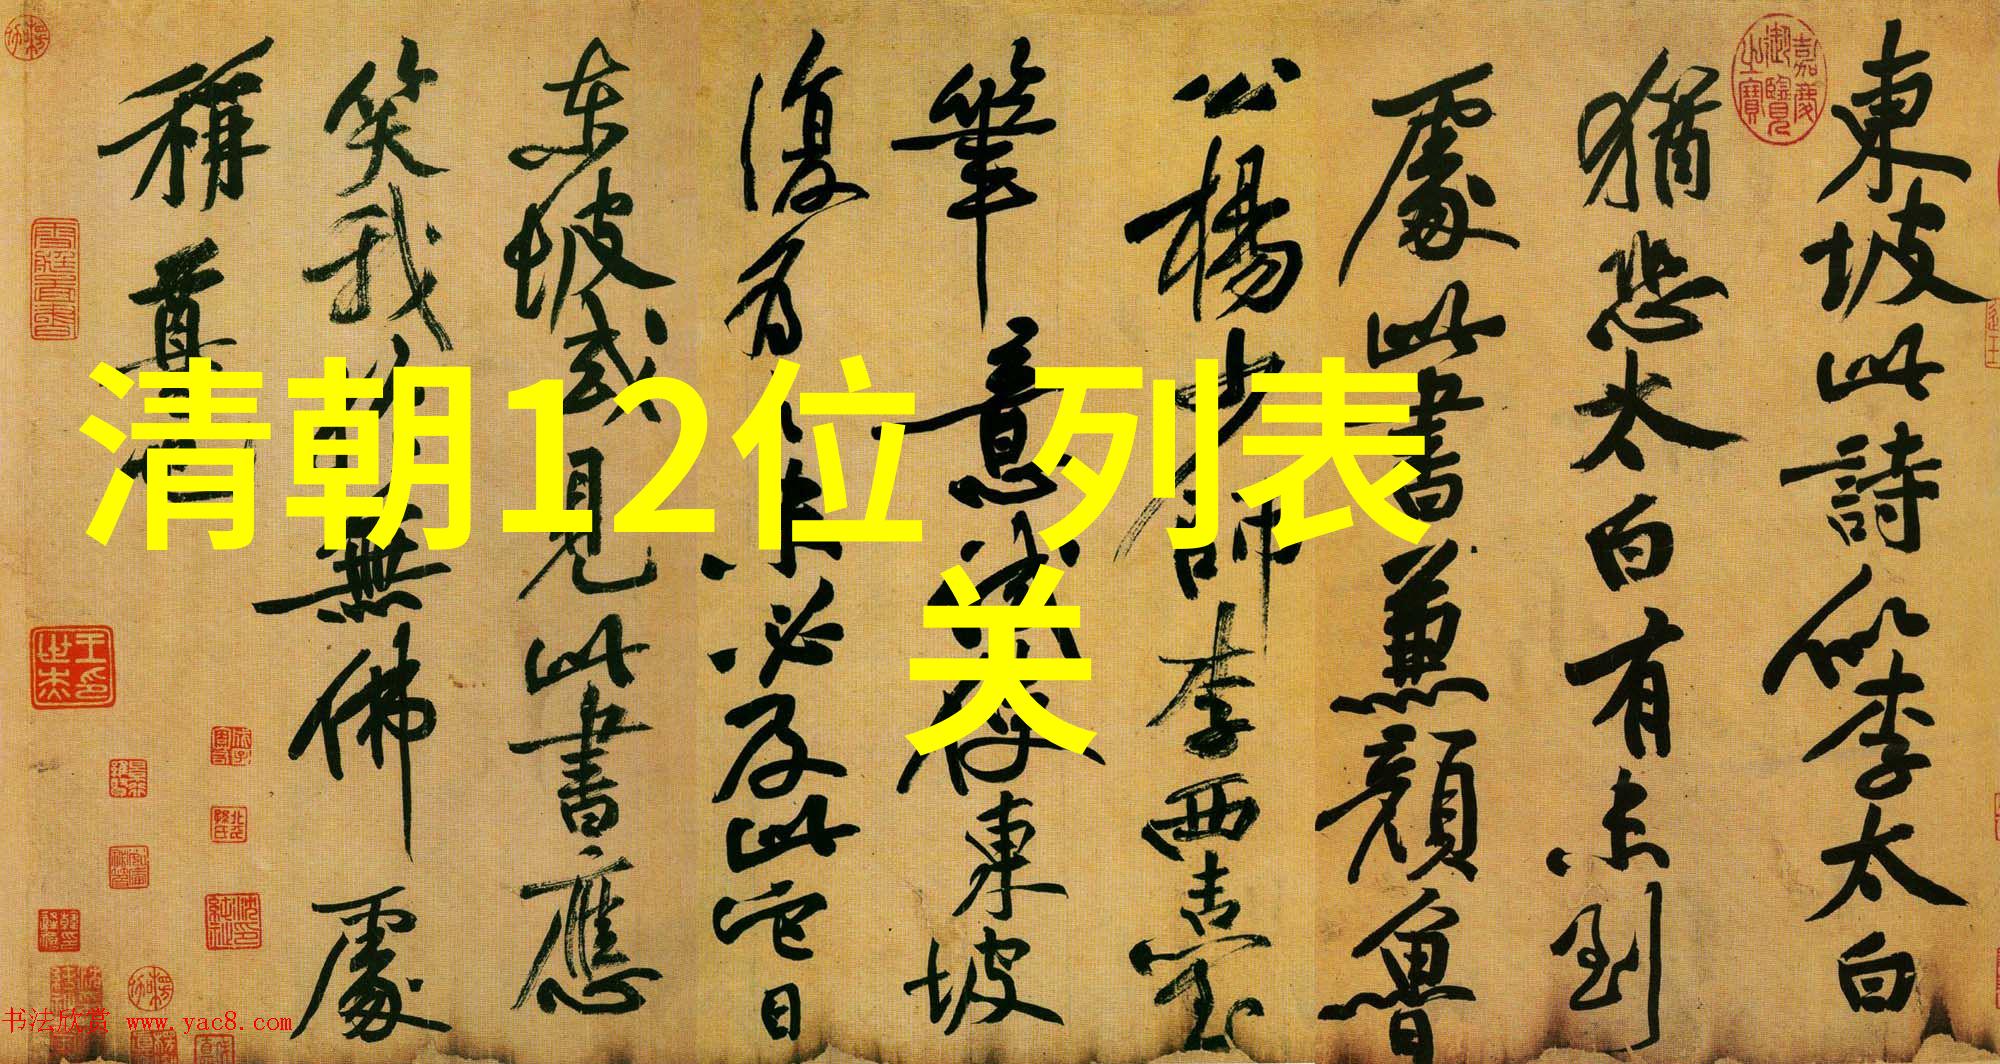 清朝12位 列表
关
東坡此詩似李太白
猶恐太白有未到
處此書兼顏魯
公楊少師李西臺
筆意試使東坡
復為之未必及此它日
東坡或見此書應
笑我於無佛處
稱尊也
嘉慶御覽之寶
书法欣赏 www.yac8.com